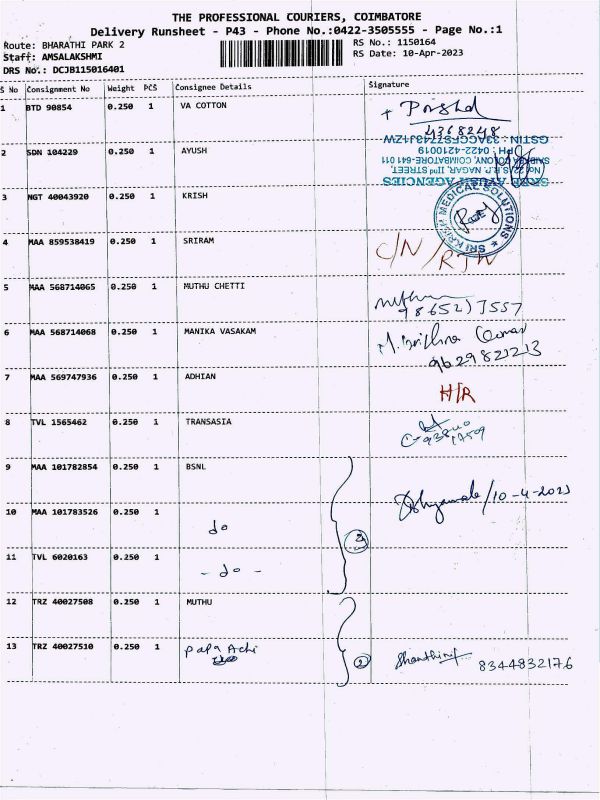 THE PROFESSIONAL COURIERS, COIMBATORE
Delivery Runsheet - P43 - Phone No.:0422-3505555 - Page No.:1
Route: BHARATHI PARK 2 RS No.: 1150164
Staff: AMSALAKSHMI RS Date: 10-Apr-2023
DRS No.: DCJB115016401
S No Consignment No Weight PCS Consignee Details Signature
1 BTD 90854 0.250 1 VA COTTON
4368248
GSTIN : 33ACCFS7743J1ZW
PH : 0422-4210019
2 SDN 104229 0.250 1 AYUSH
COLONY, COIMBATORE-641 011
NAGAR, IInd STREET,
AYUSH AGENCIES
3 NGT 40043920 0.250 1 KRISH
SRI KRISH MEDICAL SOLUTIONS
4 MAA 859538419 0.250 1 SRIRAM
C/N/RTN
5 MAA 568714065 0.250 1 MUTHU CHETTI
9865217557
6 MAA 568714068 0.250 1 MANIKA VASAKAM
9629821213
7 MAA 569747936 0.250 1 ADHIAN
H/R
8 TVL 1565462 0.250 1 TRANSASIA
9 MAA 101782854 0.250 1 BSNL
Shyamala/10-4-2023
10 MAA 101783526 0.250 1 do
11 TVL 6020163 0.250 1 - do -
12 TRZ 40027508 0.250 1 MUTHU
13 TRZ 40027510 0.250 1 papa Achi Shanthini 8344832176